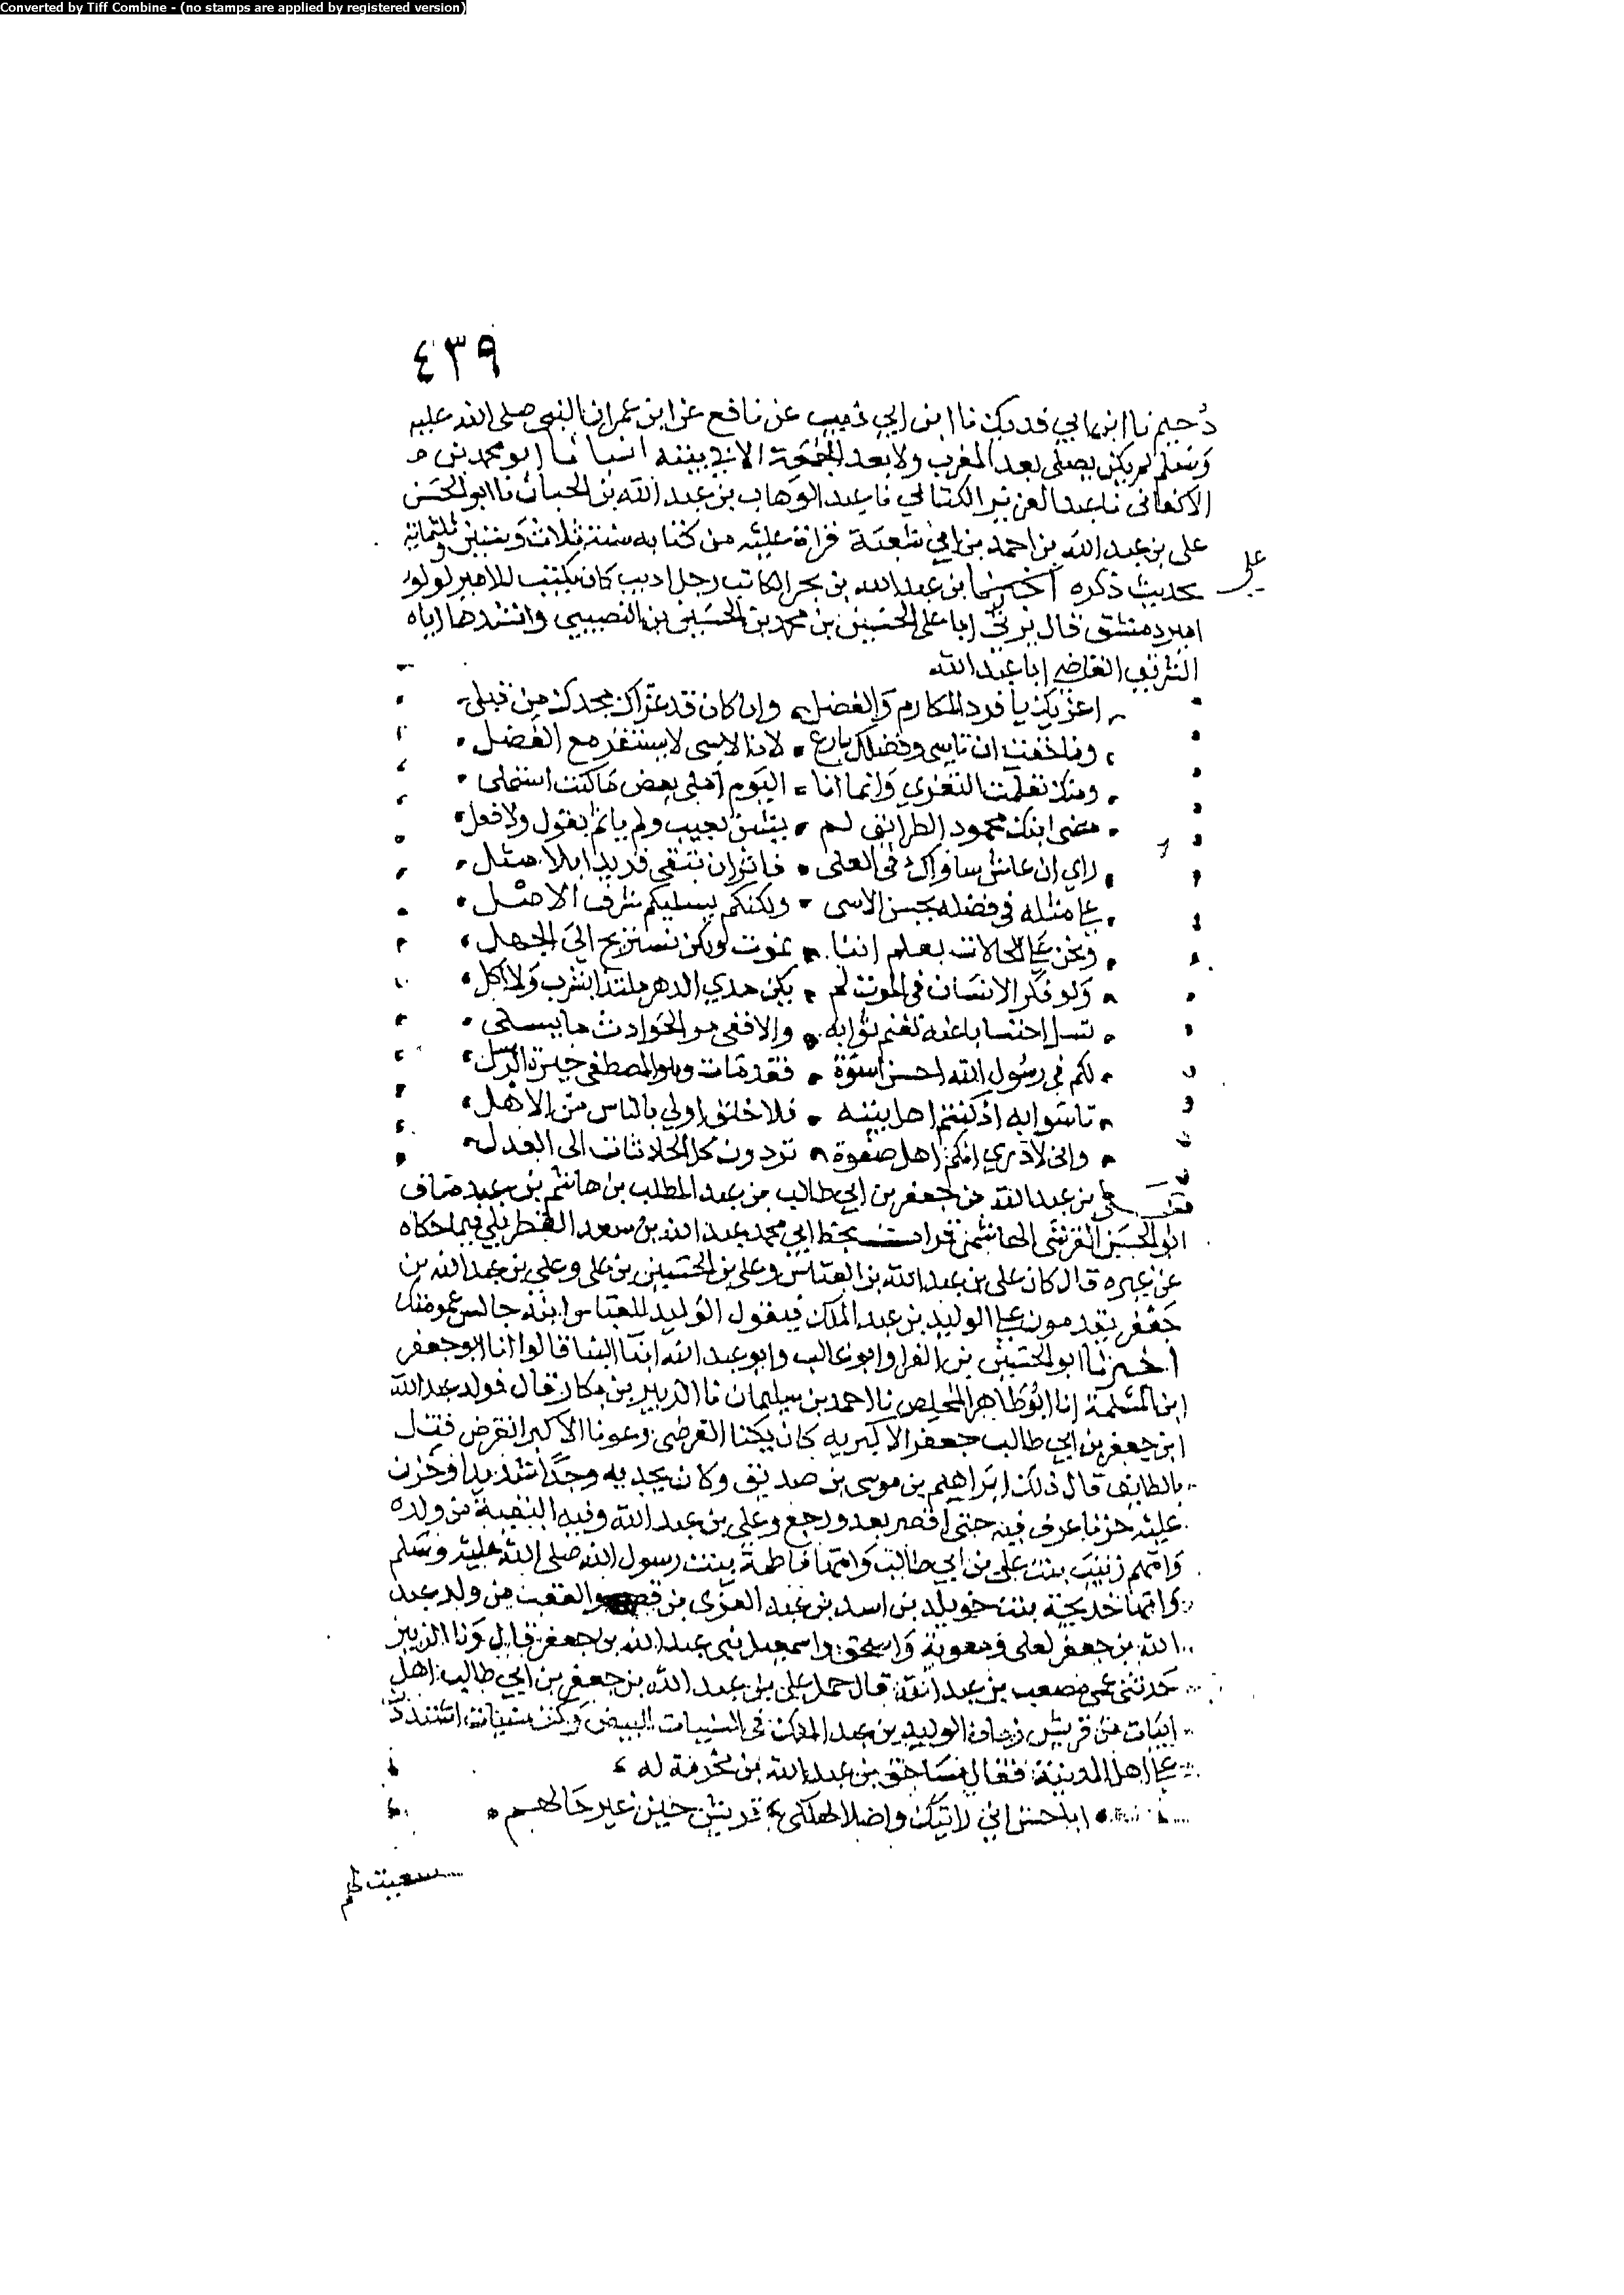 Converted by Tiff Combine - (no stamps are applied by registered version)
٤٣٩
دحيم نا ابن ابي فديك نا ابن ابي ذييب عن نافع عن ابن عمر ان النبي صلى الله عليه
وسلم لم يكن يصلي بعد المغرب ولا بعد الجمعة الا في بيته انبانا ابو محمد بن
الاكفاني نا عبد العزيز الكتاني نا عبد الوهاب بن عبد الله بن الجبان نا ابو الحسن
علي بن عبد الله بن احمد بن ابي شعبة قراة عليه من كتابه سنة ثلاث وستين وثلثماية
بحديث ذكره اخرنا بن عبد الله بن بحر الكاتب رجل اديب كان يكتب للامير لولو
علي
امير دمشق قال يرثي ابا علي الحسين بن محمد بن الحسين بن النصيبي وانشدها اياه
الشريف القاضي ابا عبد الله
اعزيك يا فرد المكارم والفضل وان كان قد عزاك مجدك من قبلي
وما خفت ان تاسى وفضلك بارع لان الاسى لا يستقر مع الفضل
ومنك تعلمت التعزي وانما انا اليوم املي بعض ما كنت استملي
مضى ابنك محمود الطرايق لم يشن بعيب ولم ياثم بقول ولا فعل
راي ان عاش ساواك في العلى فاثر ان تبقى فريدا بلا مثل
على مثله في فضله يحسن الاسى ولكنكم يسليكم شرف الاصل
ونحن على الحالات بعلم اننا نموت ولكن نستريح الى الجهل
ولو فكر الانسان في الموت لم يكن مدي الدهر ملتذا بشرب ولا اكل
تسل احتسابا عنه تغنم ثوابه والا ففي مر الحوادث ما يسلي
لكم في رسول الله احسن اسوة فقد مات وهو المصطفى خيرة الرسل
تاسوا به اذ كنتم اهل بيته فلا خلق اولي بالناس من الاهل
واني لادري انكم اهل صفوة تردون كل الحادثات الى العدل
علي بن عبد الله بن جعفر بن ابي طالب بن عبد المطلب بن هاشم بن عبد مناف
ابو الحسن القرشي الهاشمي قرات بخط ابي محمد عبد الله بن سعد القطربلي فيما حكاه
عن غيره قال كان علي بن عبد الله بن العباس وعلي بن الحسين بن علي وعلي بن عبد الله بن
جعفر يقدمون على الوليد بن عبد الملك فيقول الوليد للعباس ابنه جالس عمومتك
اخبرنا ابو الحسين بن الفرا وابو غالب وابو عبد الله ابنا البنا قالوا انا ابو جعفر
ابن المسلمة انا ابو طاهر المخلص نا احمد بن سليمان نا الزبير بن بكار قال فولد عبد الله
ابن جعفر بن ابي طالب جعفر الاكبر به كان يكنا انقرض وعونا الاكبر انقرض قتل
بالطايف قال ذلك ابراهيم بن موسى بن صديق وكان يجد به وجدا شديدا وحزن
عليه حزنا عرف فيه حتى اقصر بعد ورجع وعلي بن عبد الله وفيه البقية من ولده
وامهم زينب بنت علي بن ابي طالب وامها فاطمة بنت رسول الله صلى الله عليه وسلم
وامها خديجة بنت خويلد بن اسد بن عبد العزى بن قصي والعقب من ولد عبد
الله بن جعفر لعلي ومعوية واسحق واسمعيل بني عبد الله بن جعفر قال ونا الزبير
حدثني عمي مصعب بن عبد الله قال حمل علي بن عبد الله بن جعفر بن ابي طالب اهل
ابيات من قريش زمان الوليد بن عبد الملك في السنيات البيض وكن سنيات اشتددن
على اهل المدينة فقال مساحق بن عبد الله بن مخرمة له
ابا حسن اني رايتك واصلا لهلكى قريش حين غير حالهم
سعيت لهم